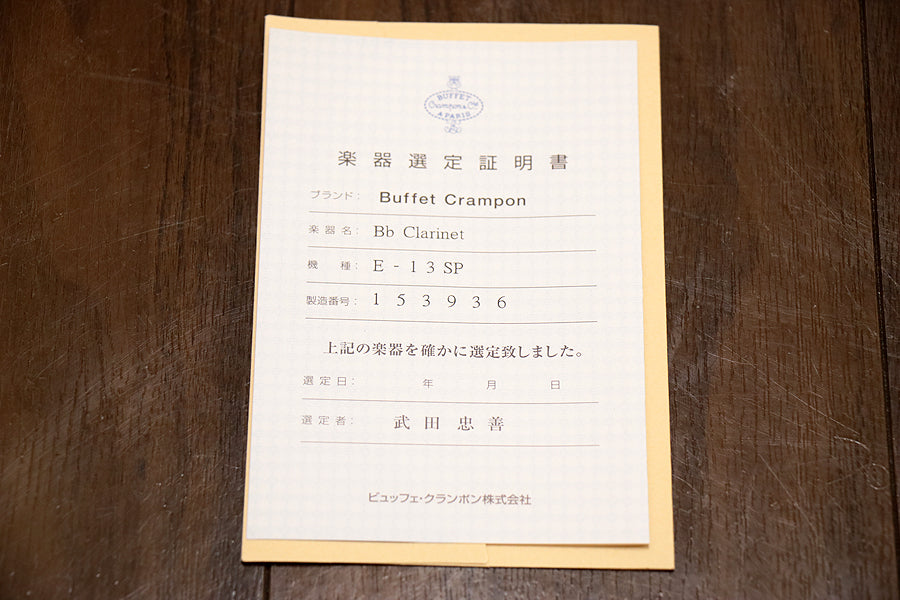 BUFFET
Crampon & Cie
A PARIS
楽器選定証明書
ブランド： Buffet Crampon
楽器名： Bb Clarinet
機種： E - 1 3 SP
製造番号： 1 5 3 9 3 6
上記の楽器を確かに選定致しました。
選定日： 年 月 日
選定者： 武田忠善
ビュッフェ・クランポン株式会社